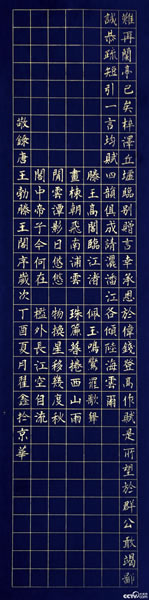 難再蘭亭已矣梓澤丘墟臨別贈言幸承恩於偉餞登高作賦是所望於群公敢竭鄙
誠恭疏短引一言均賦四韻俱成請灑潘江各傾陸海雲爾
滕王高閣臨江渚 佩玉鳴鸞罷歌舞
畫棟朝飛南浦雲 珠簾暮捲西山雨
閒雲潭影日悠悠 物換星移幾度秋
閣中帝子今何在 檻外長江空自流
敬錄唐王勃滕王閣序歲次丁酉夏月瞿鑫於京華
CCTV.com